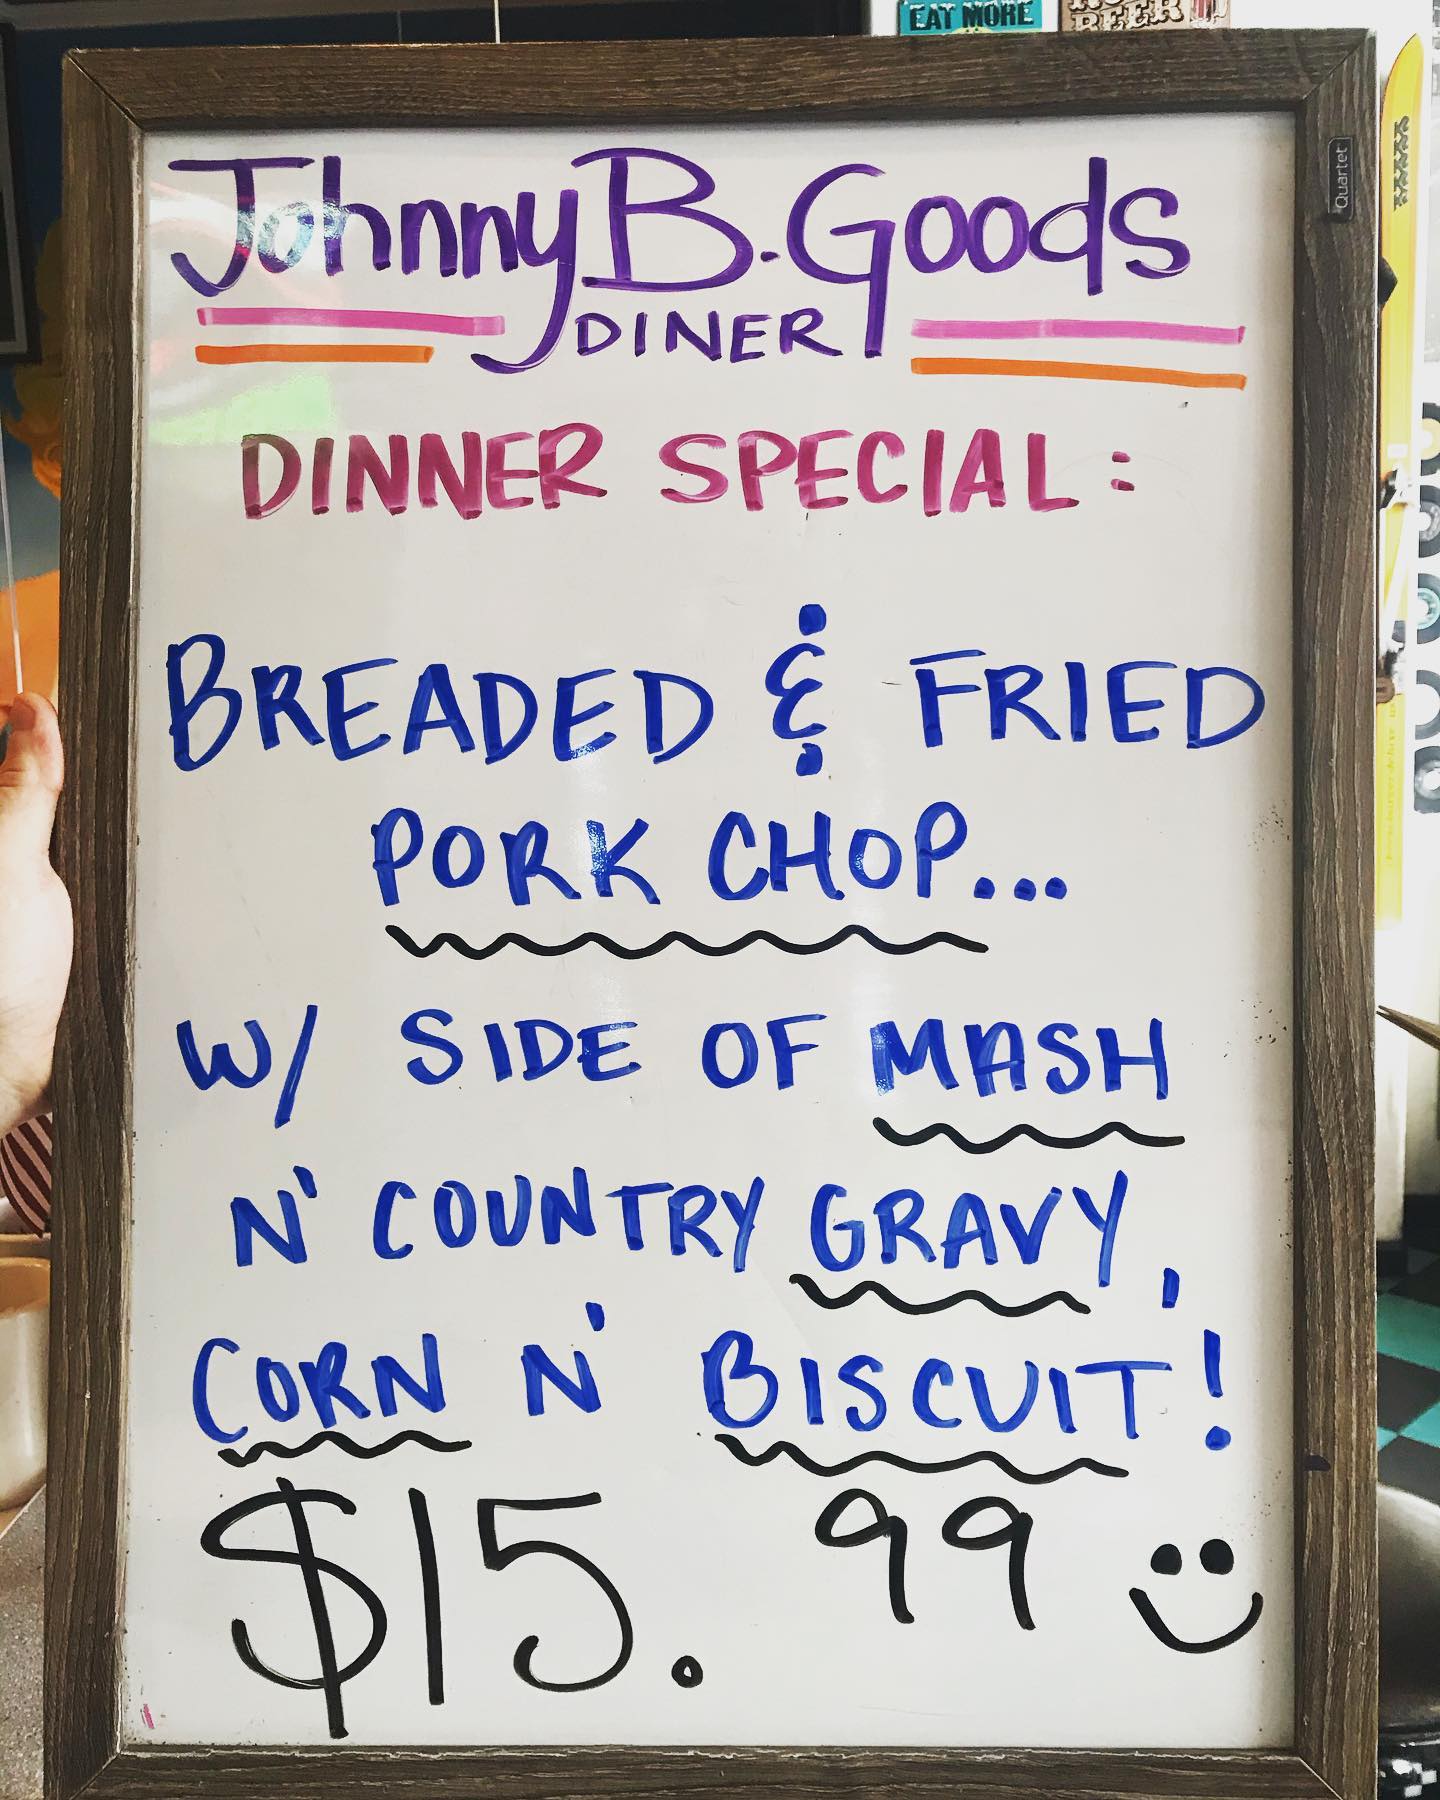 EAT MORE
BEER
Quartet
Johnny B. Goods
DINER
DINNER SPECIAL:
BREADED & FRIED
PORK CHOP...
W/ SIDE OF MASH
N' COUNTRY GRAVY,
CORN N' BISCUIT!
$15.99